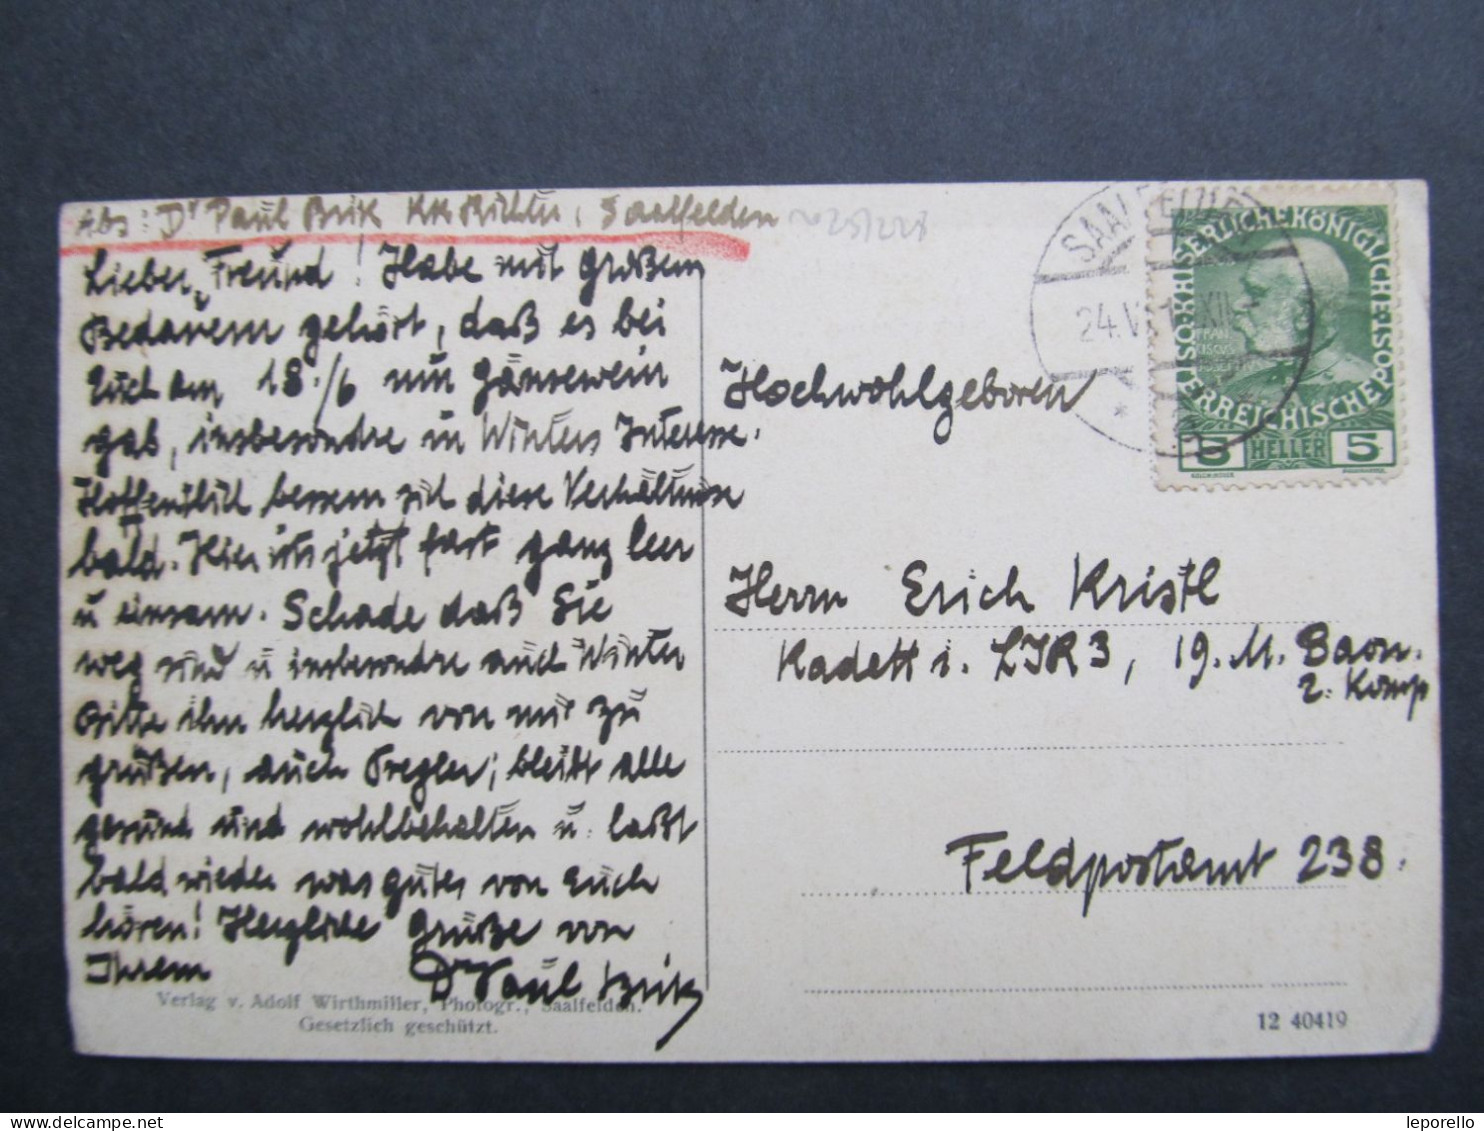 Abs: Dr Paul Brik KK Richter, Saalfelden
Lieber Freund! Habe mit großem
Bedauern gehört, daß es bei
Euch am 18./6 nur Gänsewein
gab, insbesondre in Winters Interesse.
Hoffentlich bessern sich diese Verhältnisse
bald. Hier ists jetzt fast ganz leer
u einsam. Schade daß Sie
weg sind u insbesondre auch Winter
Bitte ihn herzlich von mir zu
grüßen, auch Pregler; bleibt alle
gesund und wohlbehalten u. laßt
bald wieder was gutes von Euch
hören! Herzliche Grüße von
Ihrem Dr Paul Brik
Verlag v. Adolf Wirthmiller, Photogr., Saalfelden.
Gesetzlich geschützt.
SAALFELDEN
24.VI
XII
K.K. ÖSTERREICHISCHE POST
KAISERLICHE KÖNIGLICHE
5 HELLER 5
Hochwohlgeboren
Herrn Erich Kristl
Kadett i. LIR 3, 19. M. Baon.
2. Komp
Feldpostamt 238.
12 40419
leporello